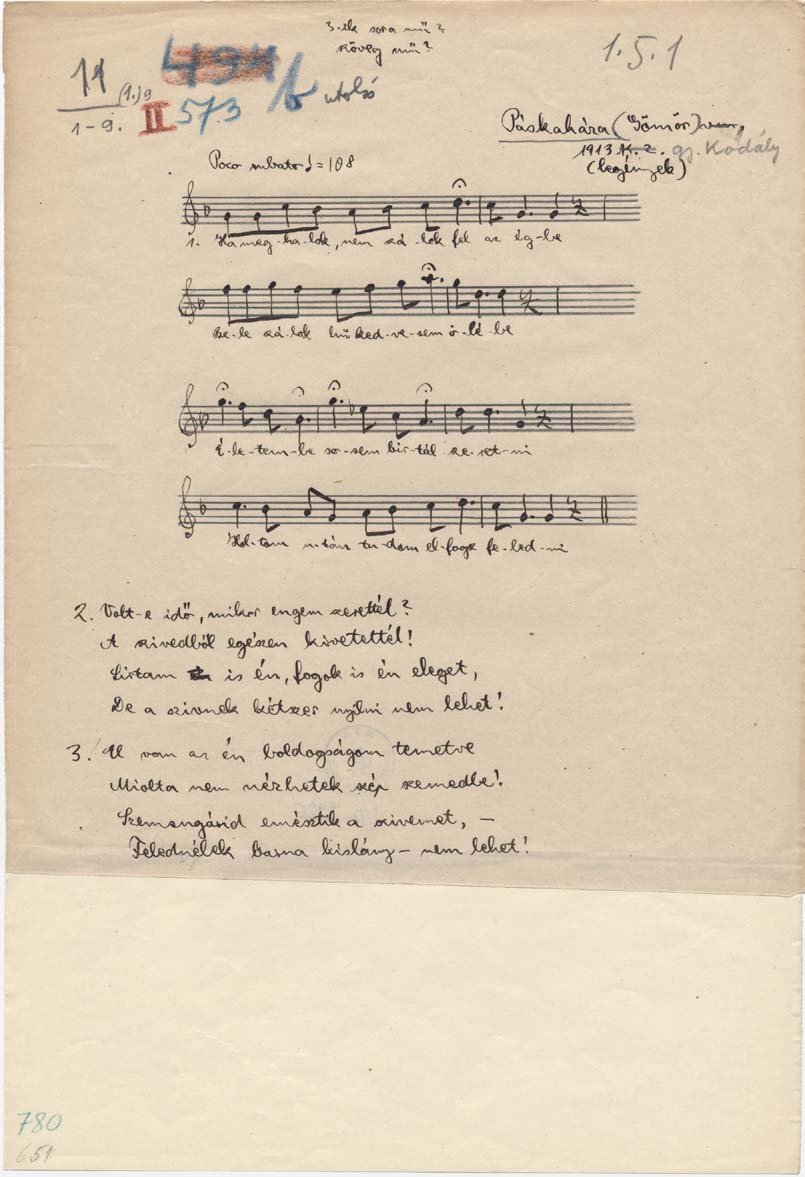 3.-ik sora mű?
szöveg mű?
1.5.1
11
(1.)9
1-9.
494
II 573 b utolsó
Páskaháza (Gömör) vm.
1913 K. Z. gy. Kodály
(legények)
Poco rubato ♩=108
1. Ha meg-ha-lok, nem szá-lok fel az ég-be
Be-le szá-lok hű ked-ve-sem ö-lé-be
É-le-tem-be so-sem bir-tál sze-ret-ni
Hol-tom u-tán tu-dom el-fogsz fe-led-ni
2. Volt-e idő, mikor engem szerettél?
A szivedből egészen kivetettél!
Sirtam is én, fogok is én eleget,
De a szivnek kétszer nyilni nem lehet!
3. El van az én boldogságom temetve
Miolta nem nézhetek szép szemedbe!
Szemsugárid emésztik a szivemet, –
Felednélek barna kislány – nem lehet!
780
651